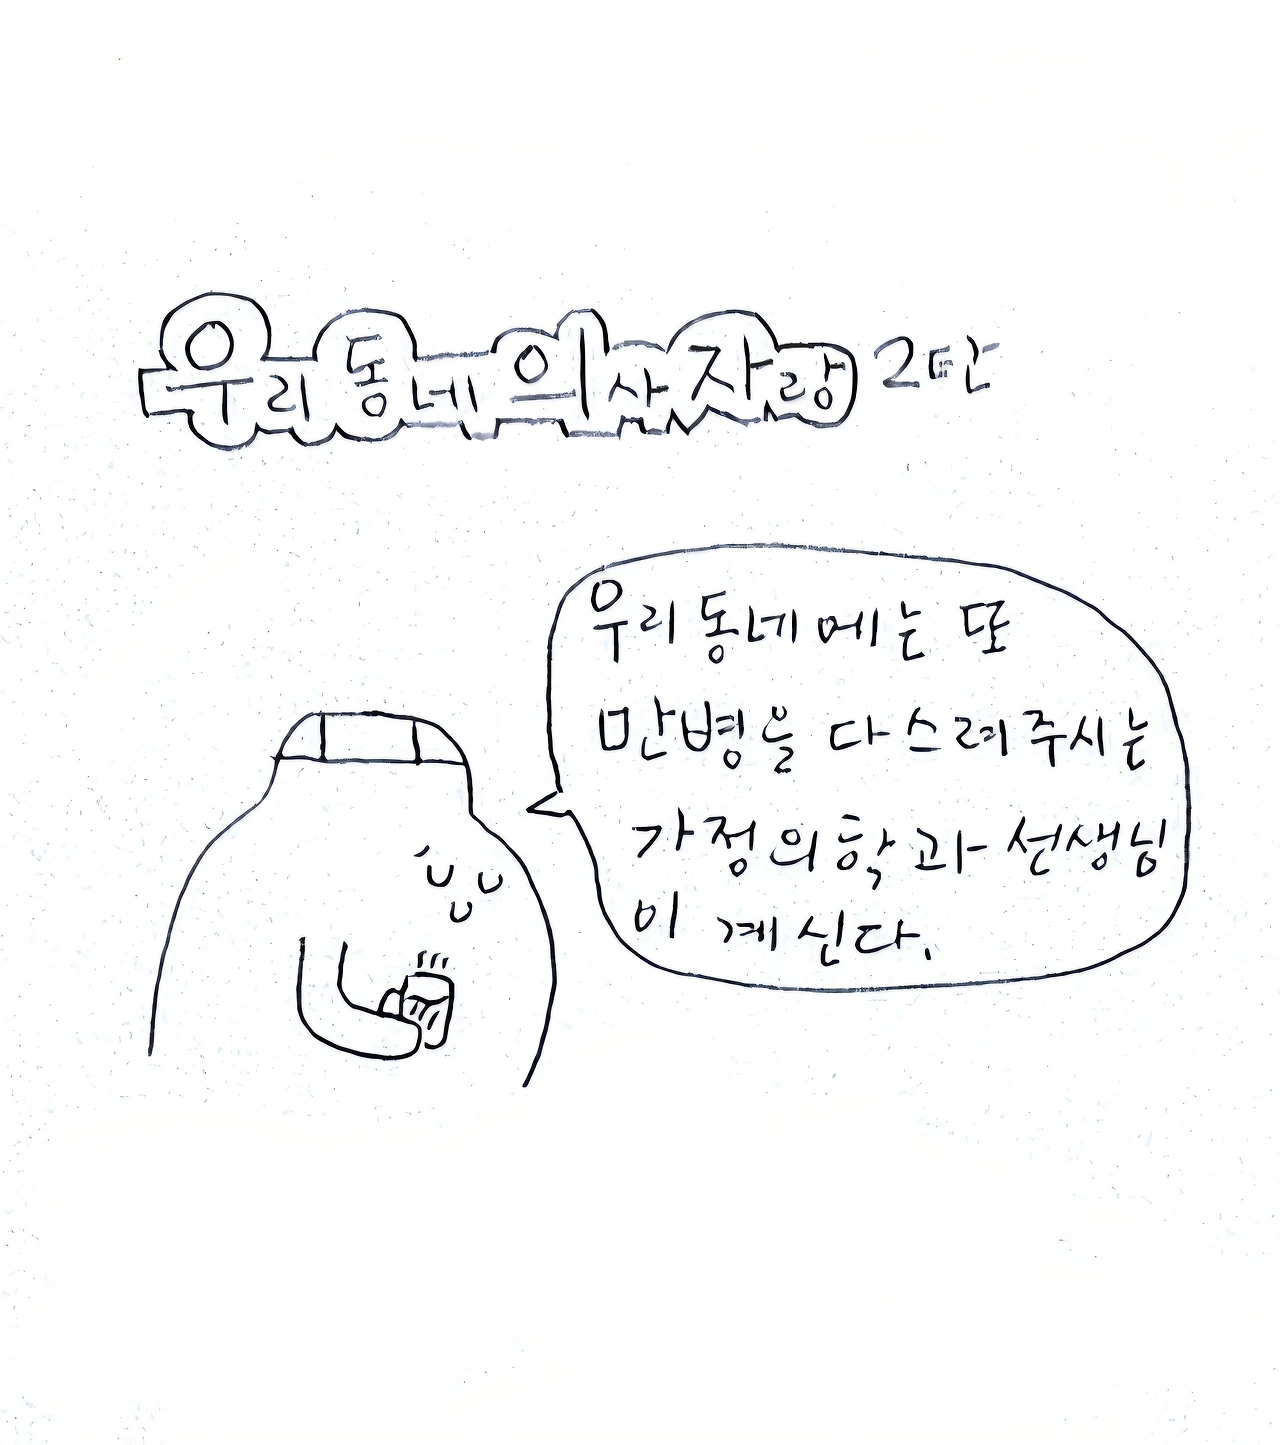 우리동네 의사자랑 2탄
우리동네에는 또
만병을 다스려주시는
가정의학과 선생님
이 계신다.